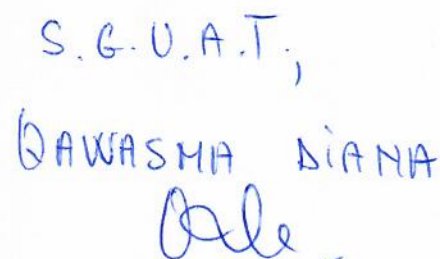 S.G.U.A.T.,
QAWASMA DIANA